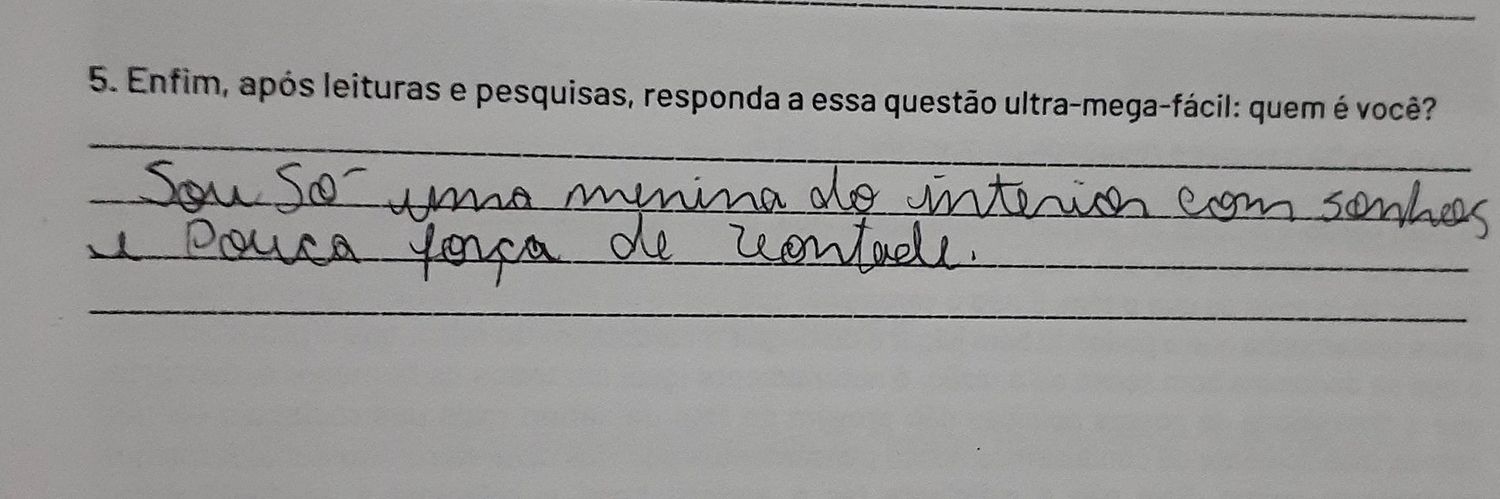 5. Enfim, após leituras e pesquisas, responda a essa questão ultra-mega-fácil: quem é você?
Sou só uma menina do interior com sonhos
e pouca força de vontade.